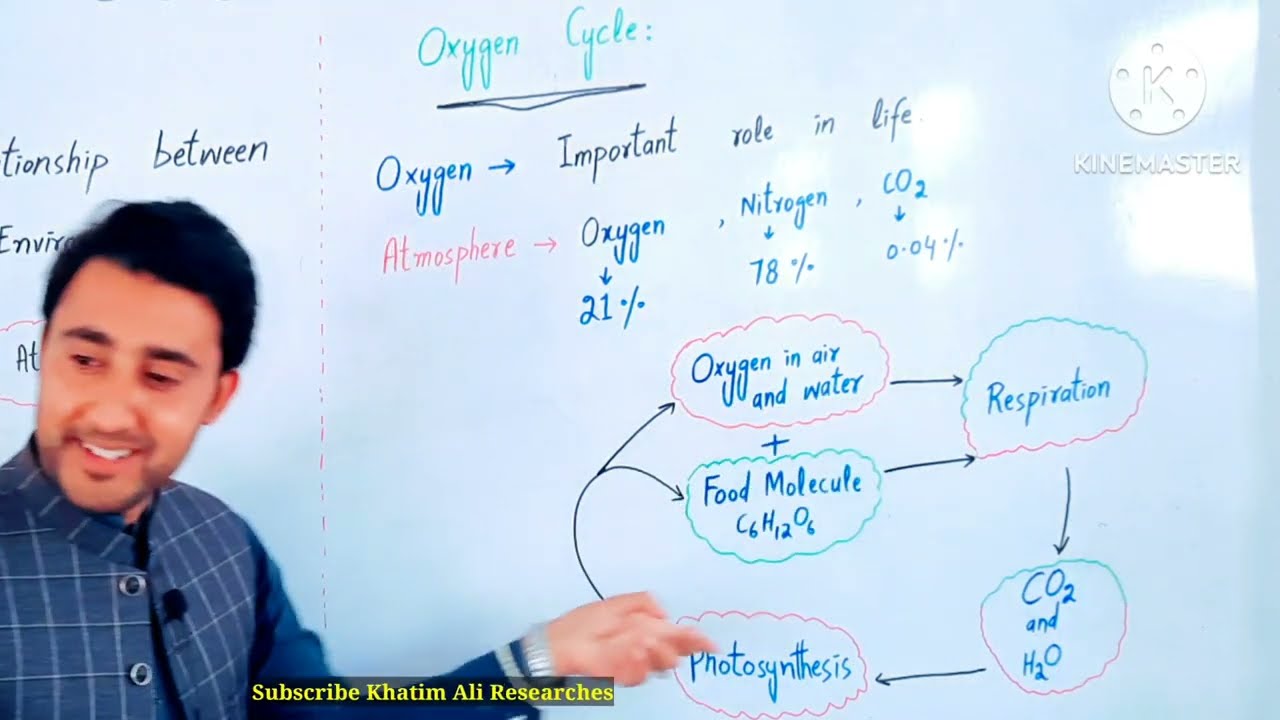 Oxygen Cycle:
tionship between
Oxygen → Important role in life.
Atmosphere → Oxygen , Nitrogen , CO₂
↓ ↓ ↓
21% 78% 0.04%
At
Oxygen in air
and water
Respiration
+
Food Molecule
C₆H₁₂O₆
CO₂
and
H₂O
Photosynthesis
KINEMASTER
Subscribe Khatim Ali Researches